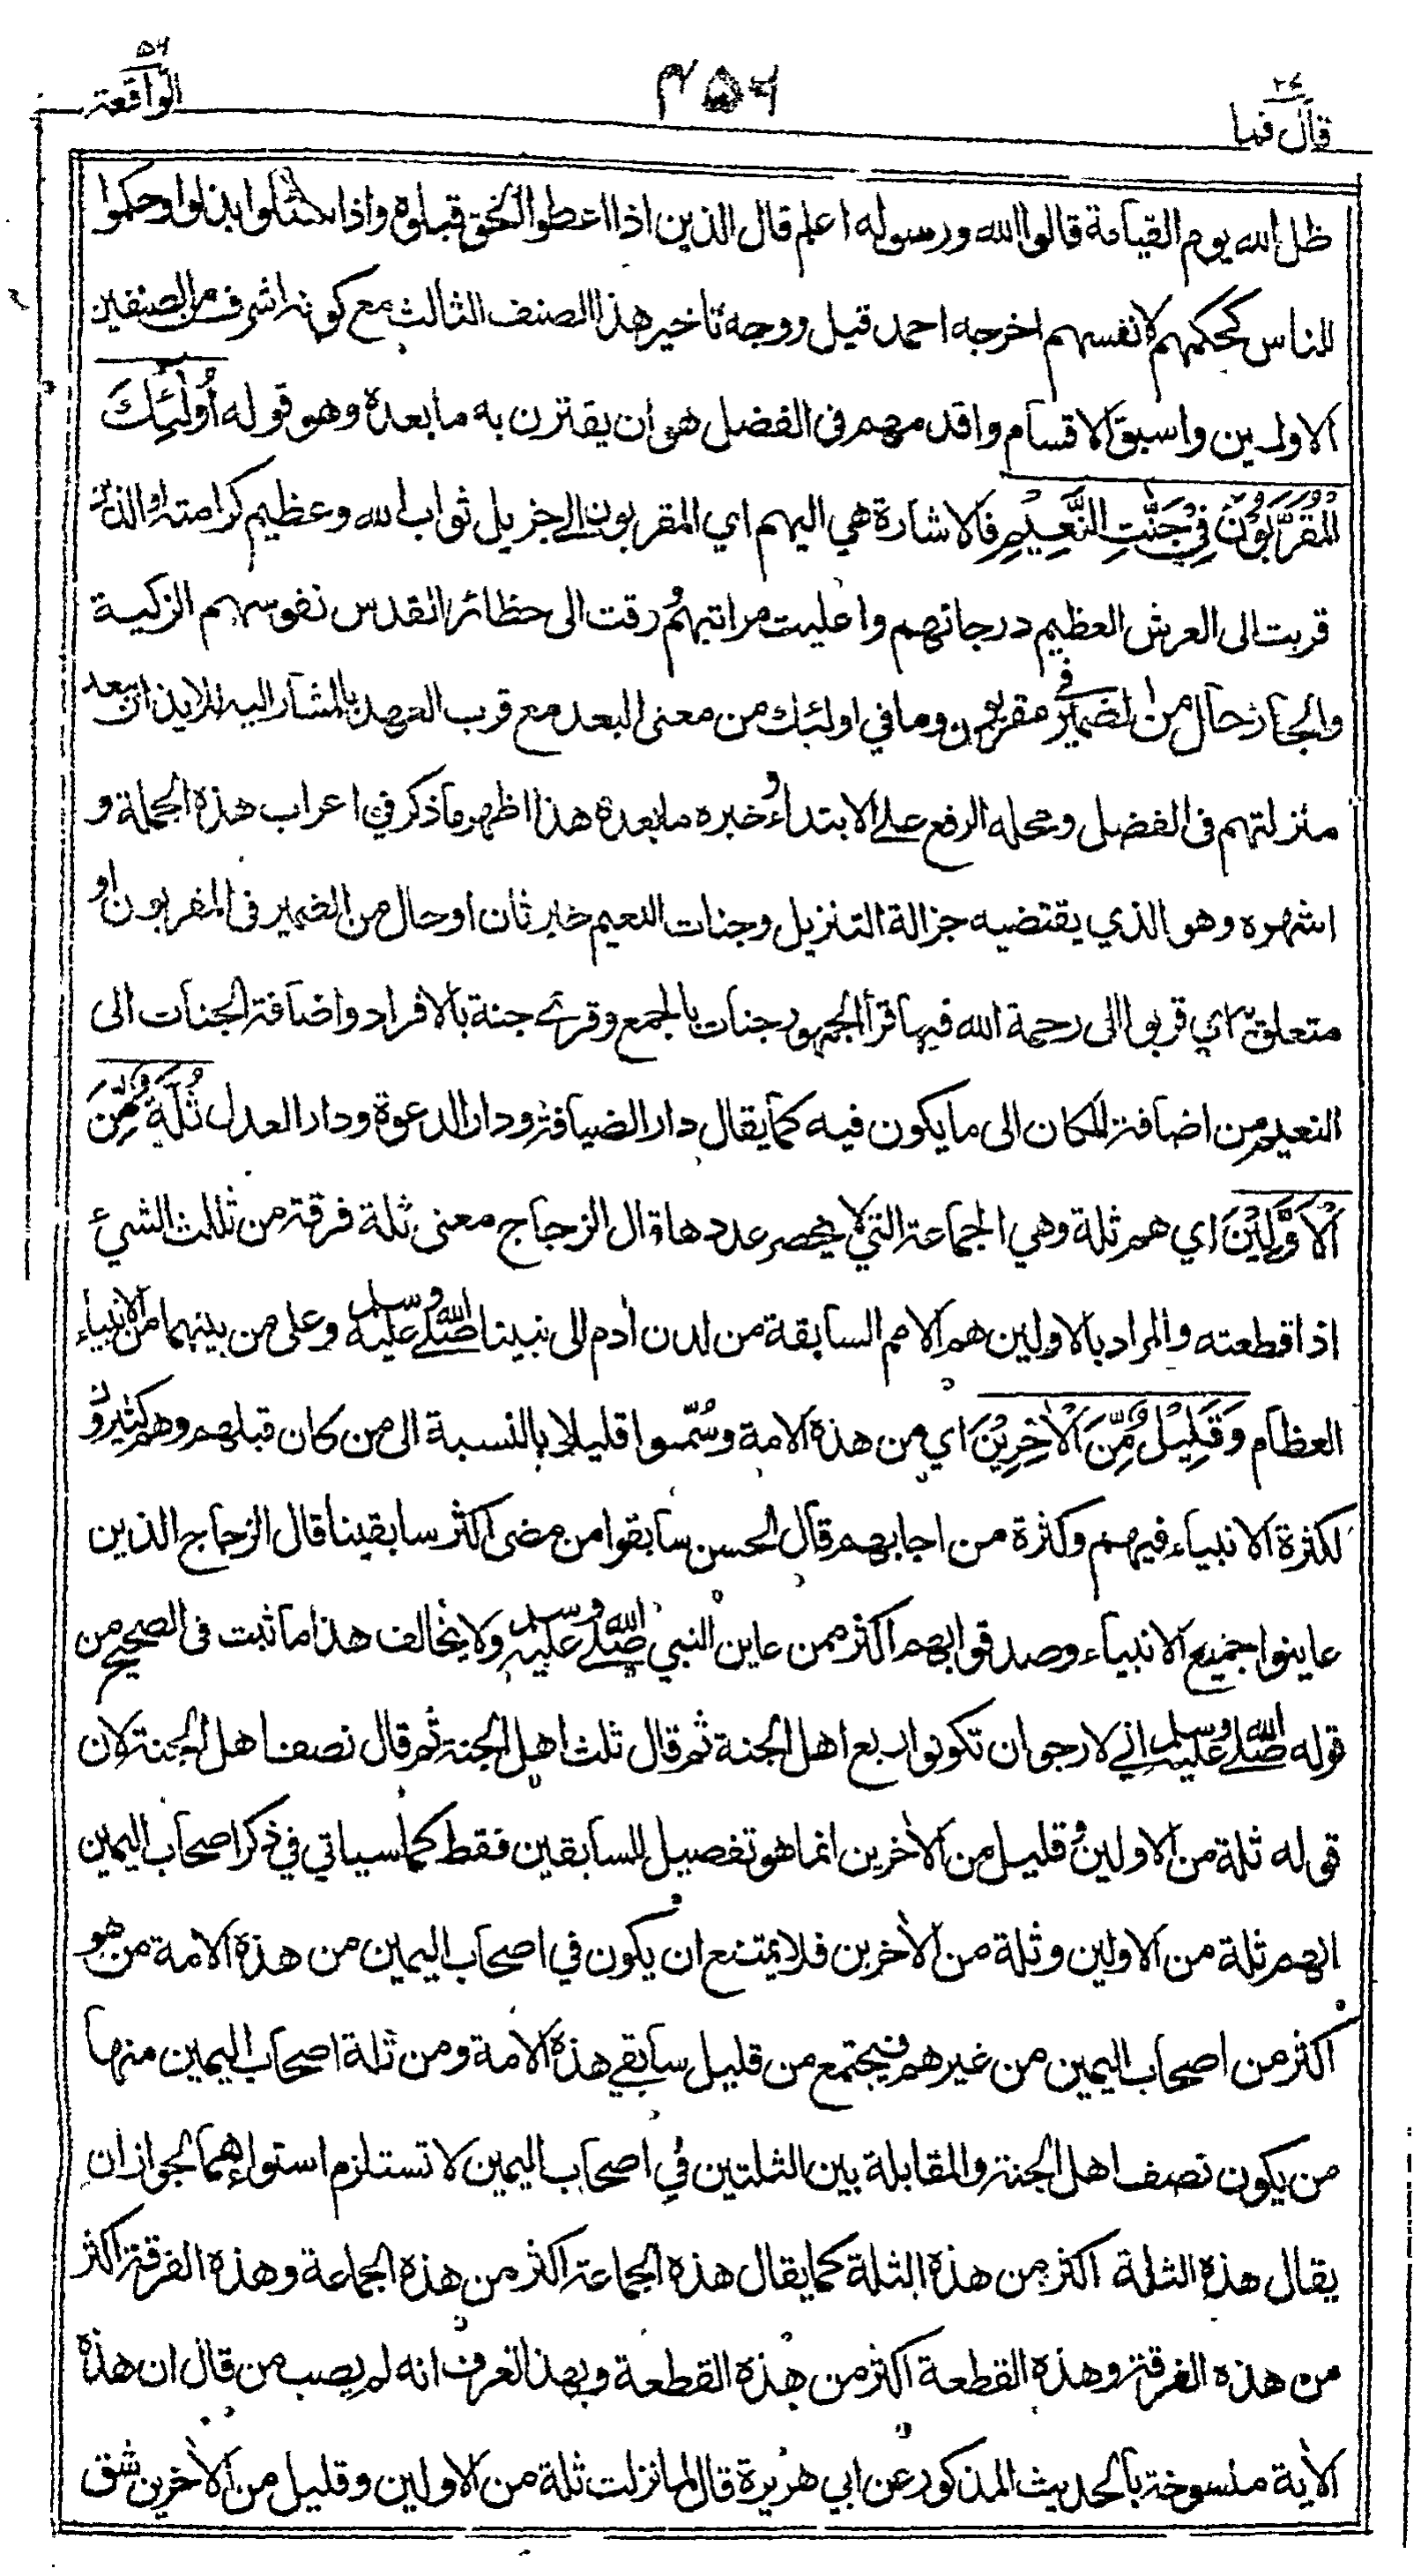 ٥٦
الواقعة
٤٥٦
٢٧
قال فما
ظل الله يوم القيامة قالوا الله ورسوله اعلم قال الذين اذا اعطوا الحق قبلوه واذا سئلوا بذلوا وحكموا
للناس كحكمهم لانفسهم اخرجه احمد قيل ووجه تاخير هذا الصنف الثالث مع كونه اشرف من الصنفين
الاولين واسبق الاقسام واقدمهم في الفضل هو ان يقترن به ما بعده وهو قوله أُولٰئِكَ
الْمُقَرَّبُوْنَ فِيْ جَنّٰتِ النَّعِيْمِ فالاشارة هي اليهم اي المقربون الى جزيل ثواب الله وعظيم كرامته او الذين
قربت الى العرش العظيم درجاتهم واعليت مراتبهم ورقت الى حظائر القدس نفوسهم الزكية
والجار حال من الضمير في مقربون وما في اولئك من معنى البعد مع قرب العهد بالمشار اليه للايذان ببعد
منزلتهم في الفضل ومحله الرفع على الابتداء وخبره ما بعده هذا اظهر ما ذكر في اعراب هذه الجملة و
اشهره وهو الذي يقتضيه جزالة التنزيل وجنات النعيم خبر ثان او حال من الضمير في المقربون او
متعلق به اي قربوا الى رحمة الله فيها قرأ الجمهور جنات بالجمع وقرئ جنة بالافراد واضافة الجنات الى
النعيم من اضافة المكان الى ما يكون فيه كما يقال دار الضيافة ودار الدعوة ودار العدل ثُلَّةٌ مِّنَ
الْاَوَّلِيْنَ اي هم ثلة وهي الجماعة التي لا يحصر عددها قال الزجاج معنى ثلة فرقة من ثللت الشيء
اذا قطعته والمراد بالاولين هم الامم السابقة من لدن آدم الى نبينا صلى الله عليه وسلم وعلى من بينهما من الانبياء
العظام وَقَلِيْلٌ مِّنَ الْاٰخِرِيْنَ اي من هذه الامة وسُمّوا قليلا بالنسبة الى من كان قبلهم وهم كثيرون
لكثرة الانبياء فيهم وكثرة من اجابهم قال الحسن سابقوا من مضى اكثر سابقينا قال الزجاج الذين
عاينوا جميع الانبياء وصدقوا بهم اكثر ممن عاين النبي صلى الله عليه وسلم ولا يخالف هذا ما ثبت في الصحيح من
قوله صلى الله عليه وسلم اني لارجو ان تكونوا ربع اهل الجنة ثم قال ثلث اهل الجنة ثم قال نصف اهل الجنة لان
قوله ثلة من الاولين وقليل من الاٰخرين انما هو تفصيل للسابقين فقط كما سياتي في ذكر اصحاب اليمين
انهم ثلة من الاولين وثلة من الاٰخرين فلا يمتنع ان يكون في اصحاب اليمين من هذه الامة من هو
اكثر من اصحاب اليمين من غيرهم فيجتمع من قليل سابقي هذه الامة ومن ثلة اصحاب اليمين منها
من يكون نصف اهل الجنة والمقابلة بين الثلتين في اصحاب اليمين لا تستلزم استواءهما لجواز ان
يقال هذه الثلة اكثر من هذه الثلة كما يقال هذه الجماعة اكثر من هذه الجماعة وهذه الفرقة اكثر
من هذه الفرقة وهذه القطعة اكثر من هذه القطعة وبهذا تعرف انه لم يصب من قال ان هذه
الاٰية منسوخة بالحديث المذكور عن ابي هريرة قال لما نزلت ثلة من الاولين وقليل من الاٰخرين شق